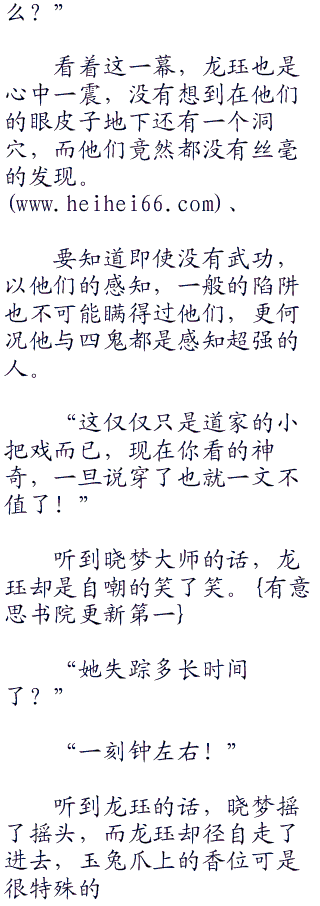 么？”
看着这一幕，龙珏也是
心中一震，没有想到在他们
的眼皮子地下还有一个洞
穴，而他们竟然都没有丝毫
的发现。
(www.heihei66.com)、
要知道即使没有武功，
以他们的感知，一般的陷阱
也不可能瞒得过他们，更何
况他与四鬼都是感知超强的
人。
“这仅仅只是道家的小
把戏而已，现在你看的神
奇，一旦说穿了也就一文不
值了！”
听到晓梦大师的话，龙
珏却是自嘲的笑了笑。{有意
思书院更新第一}
“她失踪多长时间
了？”
“一刻钟左右！”
听到龙珏的话，晓梦摇
了摇头，而龙珏却径自走了
进去，玉兔爪上的香位可是
很特殊的